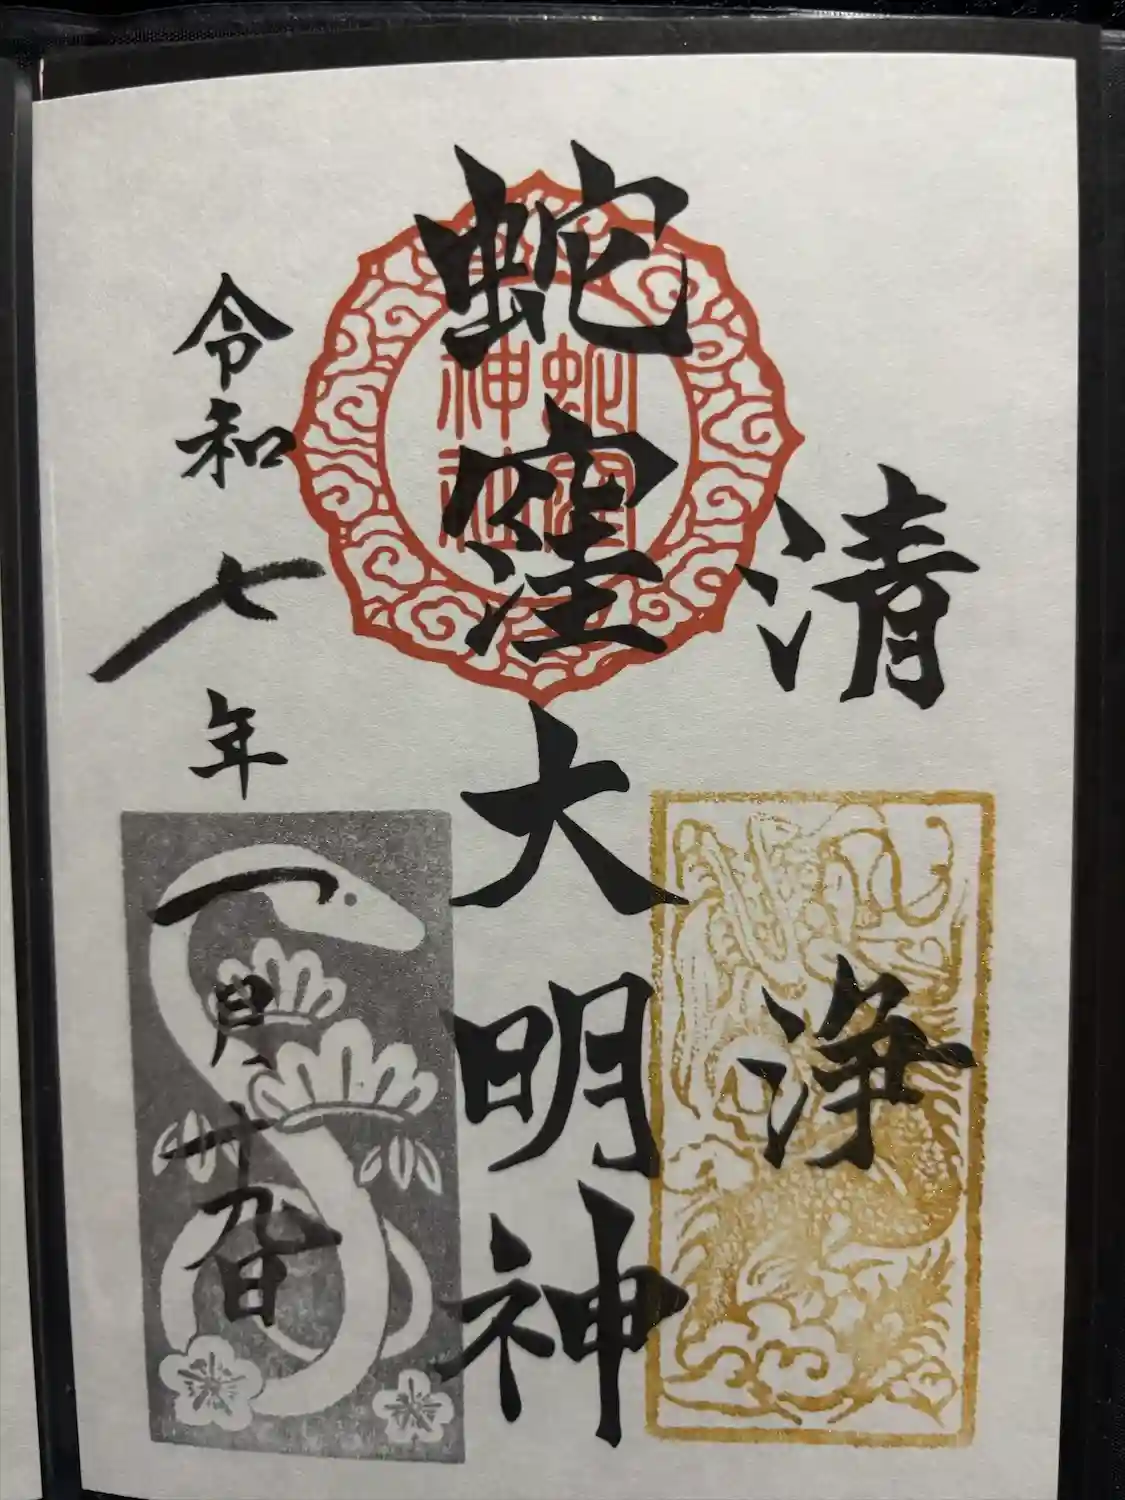 清浄
蛇窪大明神
蛇窪
神社
令和七年一月十九日